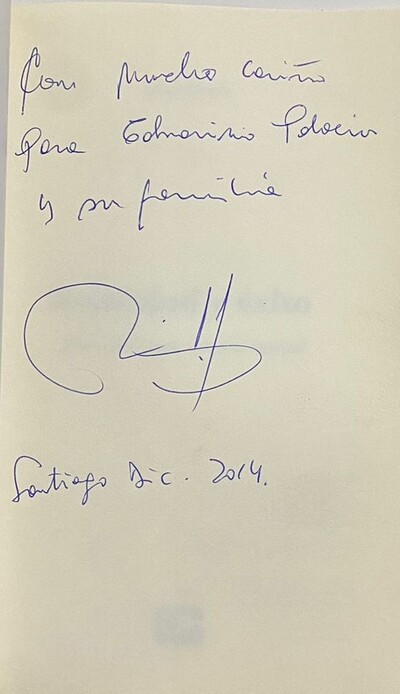 Con mucho cariño
para
y su familia
Santiago Dic. 2014.